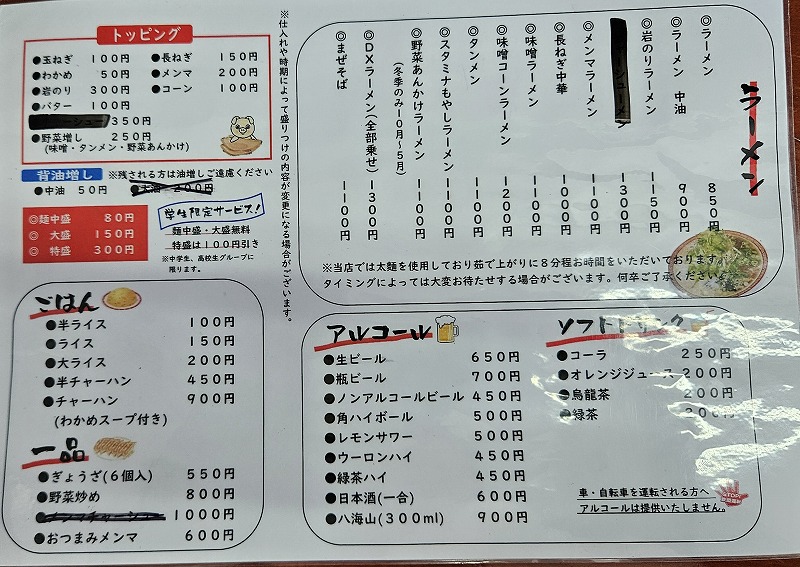 トッピング
●玉ねぎ 100円
●わかめ 50円
●岩のり 300円
●バター 100円
350円
●野菜増し 250円
(味噌・タンメン・野菜あんかけ)
●長ねぎ 150円
●メンマ 200円
●コーン 100円
背油増し ※残される方は油増しご遠慮ください
●中油 50円 ●大油 200円
◎麺中盛 80円
◎ 大盛 150円
◎ 特盛 300円
学生限定サービス!
麺中盛・大盛無料
特盛は100円引き
※中学生、高校生グループに
限ります。
※仕入れや時期によって盛りつけの内容が変更になる場合がございます。
ラーメン
◎ラーメン 850円
◎ラーメン 中油 900円
◎岩のりラーメン 1150円
◎ 1300円
◎メンマラーメン
◎長ねぎ中華
◎味噌ラーメン 1100円
◎味噌コーンラーメン 1200円
◎タンメン 1100円
◎スタミナもやしラーメン 1100円
◎野菜あんかけラーメン 1100円
(冬季のみ10月~5月)
◎DXラーメン(全部乗せ) 1300円
◎まぜそば 1100円
※当店では太麺を使用しており茹で上がりに8分程お時間をいただいております。
タイミングによっては大変お待たせする場合がございます。何卒ご了承ください。
ごはん
●半ライス 100円
●ライス 150円
●大ライス 200円
●半チャーハン 450円
●チャーハン 900円
(わかめスープ付き)
一品
●ぎょうざ(6個入) 550円
●野菜炒め 800円
1000円
●おつまみメンマ 600円
アルコール
●生ビール 650円
●瓶ビール 700円
●ノンアルコールビール 450円
●角ハイボール 500円
●レモンサワー 500円
●ウーロンハイ 450円
●緑茶ハイ 450円
●日本酒(一合) 600円
●八海山(300ml) 900円
ソフトドリンク
●コーラ 250円
●オレンジジュース 200円
●烏龍茶 200円
●緑茶 200円
車・自転車を運転される方へ
アルコールは提供いたしません。
STOP!